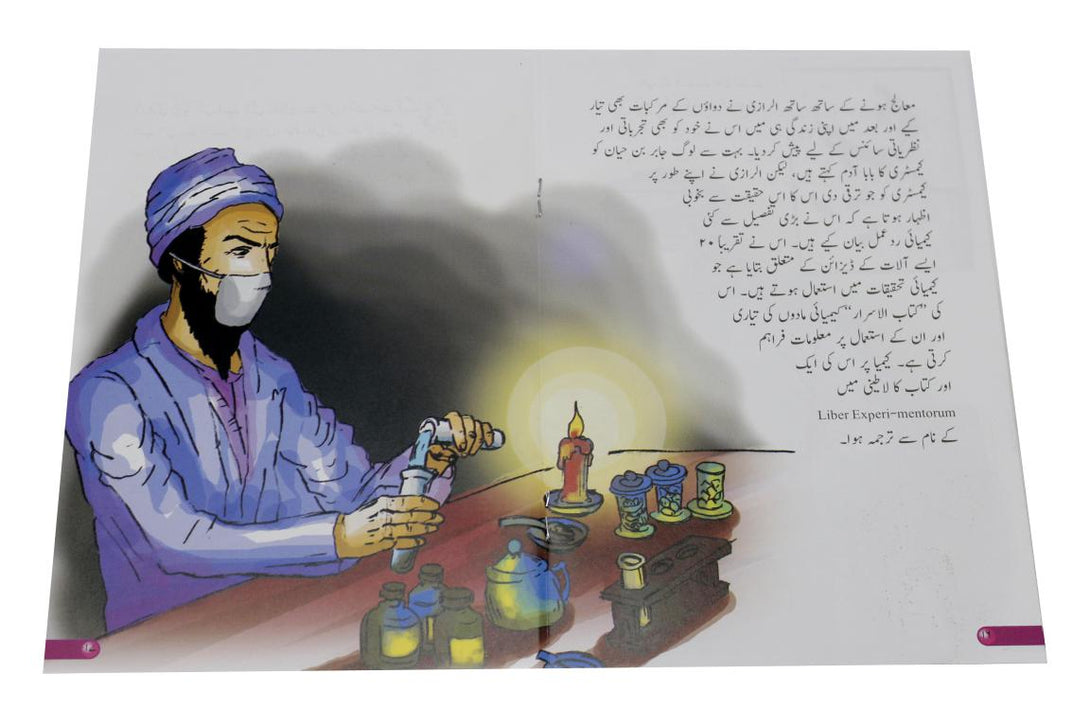 معالج ہونے کے ساتھ ساتھ الرازی نے دواؤں کے مرکبات بھی تیار
کیے اور بعد میں اپنی زندگی ہی میں اس نے خود کو بھی تجرباتی اور
نظریاتی سائنس کے لیے پیش کر دیا۔ بہت سے لوگ جابر بن حیان کو
کیمسٹری کا بابا آدم کہتے ہیں، لیکن الرازی نے اپنے طور پر
کیمسٹری کو جو ترقی دی اس کا اس حقیقت سے بخوبی
اظہار ہوتا ہے کہ اس نے بڑی تفصیل سے کئی
کیمیائی ردعمل بیان کیے ہیں۔ اس نے تقریباً ۲۰
ایسے آلات کے ڈیزائن کے متعلق بتایا ہے جو
کیمیائی تحقیقات میں استعمال ہوتے ہیں۔ اس
کی "کتاب الاسرار" کیمیائی مادوں کی تیاری
اور ان کے استعمال پر معلومات فراہم
کرتی ہے۔ کیمیا پر اس کی ایک
اور کتاب کا لاطینی میں
Liber Experi-mentorum
کے نام سے ترجمہ ہوا۔